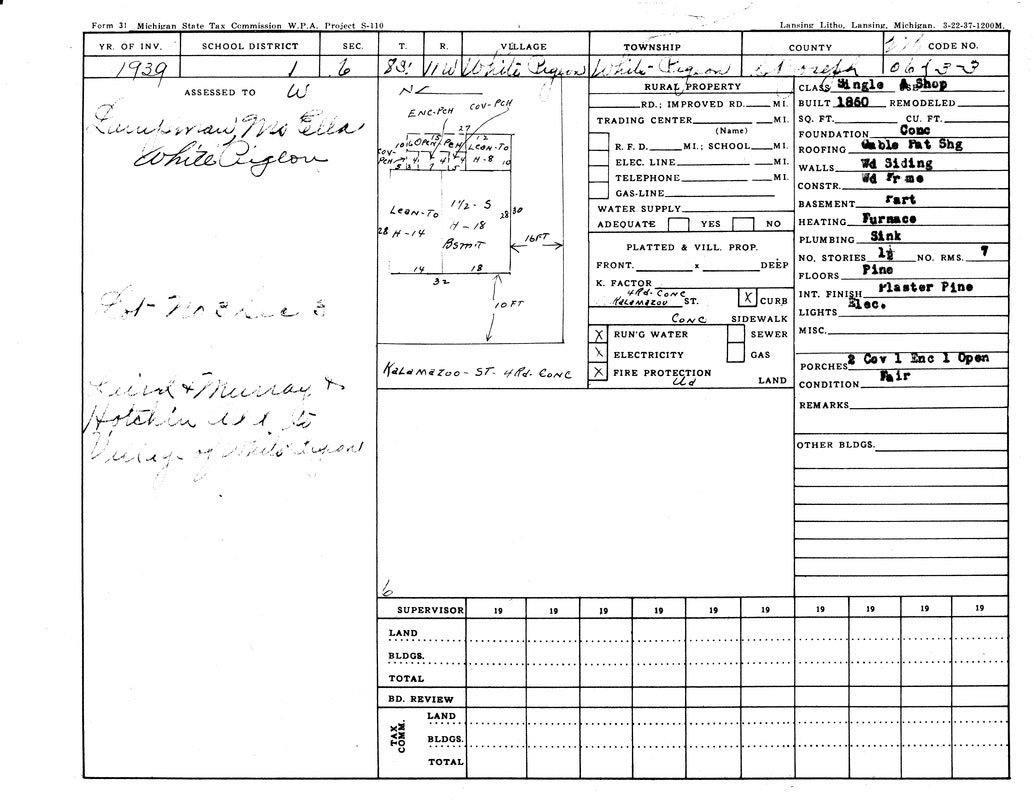 Form 31 Michigan State Tax Commission W.P.A. Project S-110
Lansing Litho, Lansing, Michigan. 3-22-37-1200M.
YR. OF INV. SCHOOL DISTRICT SEC. T. R. VILLAGE TOWNSHIP COUNTY CODE NO.
1939 1 6 8S 11W White Pigeon White Pigeon St Joseph
ASSESSED TO W
Ella
White Pigeon
Lot No 3 3
Laird & Murray &
Hotchin
Village of White Pigeon
N
ENC-PCH COV-PCH
27
10 OPCH 15 PCH 12
LEAN-TO
H-8 10
COV-PCH
LEAN-TO
28 H-14
1 1/2-S
H-18
BSMT
28 30
16FT
14 18
32
10 FT
KALAMAZOO-ST. 4 RD. CONC
6
RURAL PROPERTY
RD.; IMPROVED RD. MI.
TRADING CENTER MI.
(Name)
R. F. D. MI.; SCHOOL MI.
ELEC. LINE MI.
TELEPHONE MI.
GAS-LINE
WATER SUPPLY
ADEQUATE YES NO
PLATTED & VILL. PROP.
FRONT. x DEEP
K. FACTOR
4 Rd. CONC
KALAMAZOO ST. X CURB
CONC SIDEWALK
X RUN'G WATER SEWER
X ELECTRICITY GAS
X FIRE PROTECTION
LAND
CLASS Single & Shop
BUILT 1860 REMODELED
SQ. FT. CU. FT.
FOUNDATION Conc
ROOFING Gable Pat Shg
WALLS Wd Siding
CONSTR. Wd Frame
BASEMENT Part
HEATING Furnace
PLUMBING Sink
NO. STORIES 1½ NO. RMS. 7
FLOORS Pine
INT. FINISH Plaster Pine
LIGHTS Elec.
MISC.
PORCHES 2 Cov 1 Enc 1 Open
CONDITION Fair
REMARKS
OTHER BLDGS.
SUPERVISOR 19 19 19 19 19 19 19 19 19 19
LAND
BLDGS.
TOTAL
BD. REVIEW
TAX COMM.
LAND
BLDGS.
TOTAL